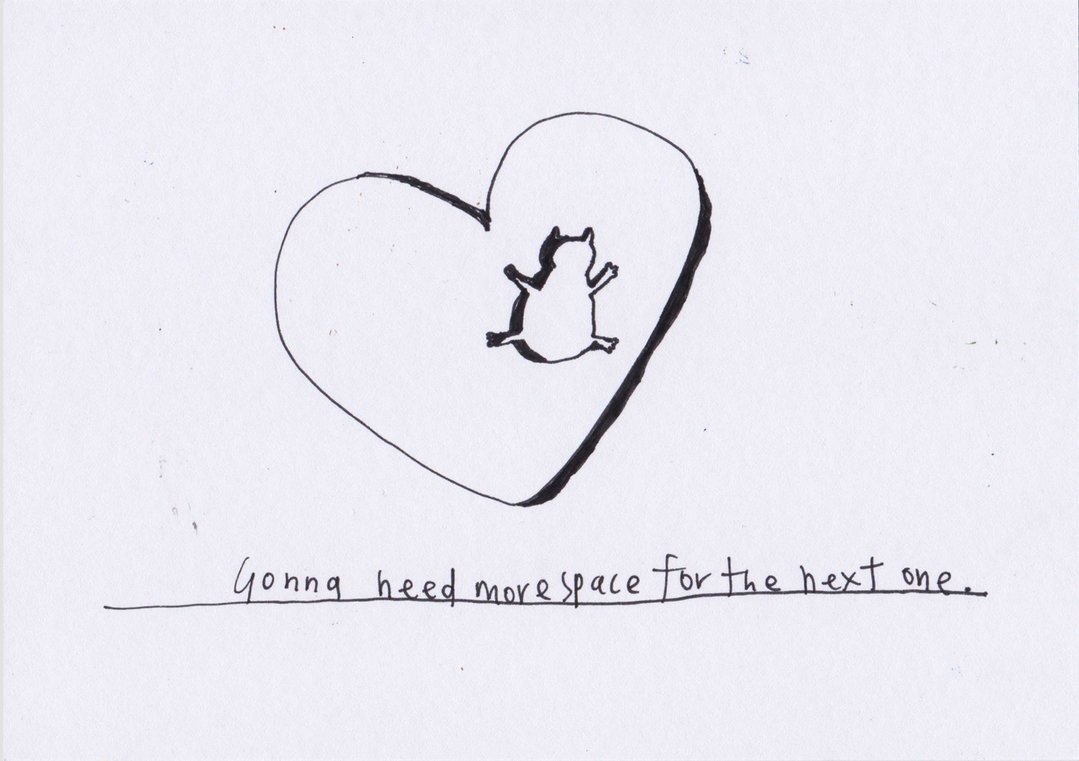 Gonna need more space for the next one.